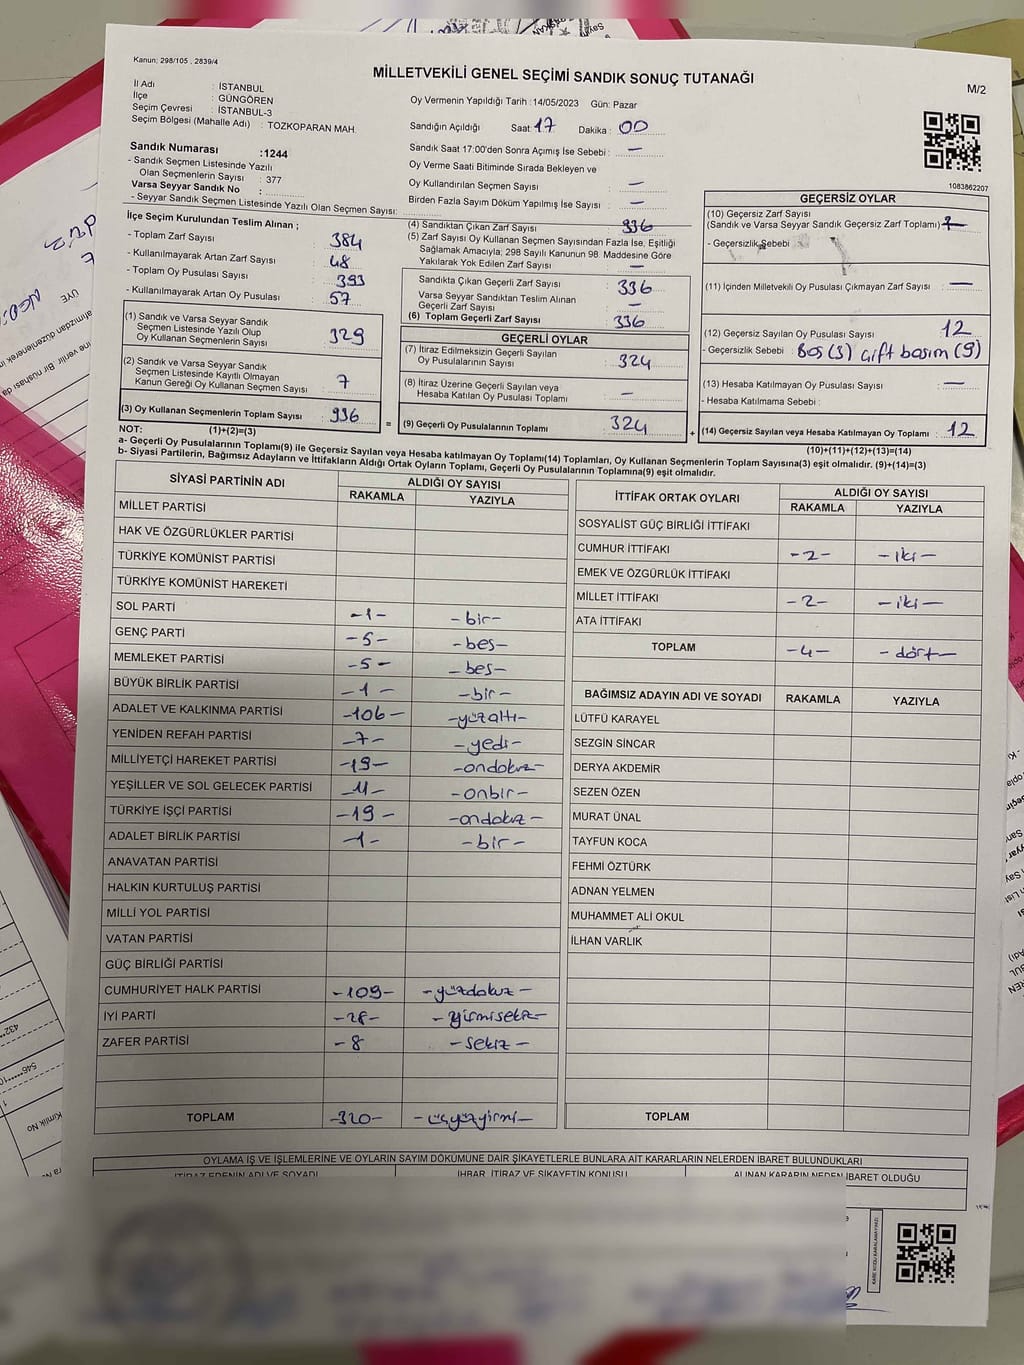 Kanun; 298/105 , 2839/4
MİLLETVEKİLİ GENEL SEÇİMİ SANDIK SONUÇ TUTANAĞI
M/2
İl Adı : İSTANBUL
İlçe : GÜNGÖREN
Seçim Çevresi : İSTANBUL-3
Seçim Bölgesi (Mahalle Adı) : TOZKOPARAN MAH.
Sandık Numarası :1244
- Sandık Seçmen Listesinde Yazılı
Olan Seçmenlerin Sayısı : 377
Varsa Seyyar Sandık No :
- Seyyar Sandık Seçmen Listesinde Yazılı Olan Seçmen Sayısı:
Oy Vermenin Yapıldığı Tarih : 14/05/2023 Gün: Pazar
Sandığın Açıldığı Saat: 17 Dakika : 00
Sandık Saat 17:00'den Sonra Açımış İse Sebebi : —
Oy Verme Saati Bitiminde Sırada Bekleyen ve
Oy Kullandırılan Seçmen Sayısı —
Birden Fazla Sayım Döküm Yapılmış İse Sayısı : —
1083862207
İlçe Seçim Kurulundan Teslim Alınan ;
- Toplam Zarf Sayısı 384
- Kullanılmayarak Artan Zarf Sayısı : 48
- Toplam Oy Pusulası Sayısı : 393
- Kullanılmayarak Artan Oy Pusulası : 57
(1) Sandık ve Varsa Seyyar Sandık
Seçmen Listesinde Yazılı Olup
Oy Kullanan Seçmenlerin Sayısı : 329
(2) Sandık ve Varsa Seyyar Sandık
Seçmen Listesinde Kayıtlı Olmayan
Kanun Gereği Oy Kullanan Seçmen Sayısı : 7
(3) Oy Kullanan Seçmenlerin Toplam Sayısı : 336
(1)+(2)=(3)
(4) Sandıktan Çıkan Zarf Sayısı : 336
(5) Zarf Sayısı Oy Kullanan Seçmen Sayısından Fazla İse, Eşitliği
Sağlamak Amacıyla; 298 Sayılı Kanunun 98. Maddesine Göre
Yakılarak Yok Edilen Zarf Sayısı : —
Sandıkta Çıkan Geçerli Zarf Sayısı : 336
Varsa Seyyar Sandıktan Teslim Alınan
Geçerli Zarf Sayısı : —
(6) Toplam Geçerli Zarf Sayısı : 336
GEÇERLİ OYLAR
(7) İtiraz Edilmeksizin Geçerli Sayılan
Oy Pusulalarının Sayısı : 324
(8) İtiraz Üzerine Geçerli Sayılan veya
Hesaba Katılan Oy Pusulası Toplamı : —
=
(9) Geçerli Oy Pusulalarının Toplamı : 324
+
GEÇERSİZ OYLAR
(10) Geçersiz Zarf Sayısı
(Sandık ve Varsa Seyyar Sandık Geçersiz Zarf Toplamı) :
- Geçersizlik Sebebi
(11) İçinden Milletvekili Oy Pusulası Çıkmayan Zarf Sayısı : —
(12) Geçersiz Sayılan Oy Pusulası Sayısı : 12
- Geçersizlik Sebebi : Boş (3) Çift basım (9)
(13) Hesaba Katılmayan Oy Pusulası Sayısı : —
- Hesaba Katılmama Sebebi :
(14) Geçersiz Sayılan veya Hesaba Katılmayan Oy Toplamı : 12
(10)+(11)+(12)+(13)=(14)
NOT:
a- Geçerli Oy Pusulalarının Toplamı(9) ile Geçersiz Sayılan veya Hesaba katılmayan Oy Toplamı(14) Toplamları, Oy Kullanan Seçmenlerin Toplam Sayısına(3) eşit olmalıdır. (9)+(14)=(3)
b- Siyasi Partilerin, Bağımsız Adayların ve İttifakların Aldığı Ortak Oyların Toplamı, Geçerli Oy Pusulalarının Toplamına(9) eşit olmalıdır.
SİYASİ PARTİNİN ADI ALDIĞI OY SAYISI
RAKAMLA YAZIYLA
MİLLET PARTİSİ
HAK VE ÖZGÜRLÜKLER PARTİSİ
TÜRKİYE KOMÜNİST PARTİSİ
TÜRKİYE KOMÜNİST HAREKETİ
SOL PARTİ -1- -bir-
GENÇ PARTİ -5- -beş-
MEMLEKET PARTİSİ -5- -beş-
BÜYÜK BİRLİK PARTİSİ -1- -bir-
ADALET VE KALKINMA PARTİSİ -106- -yüzaltı-
YENİDEN REFAH PARTİSİ -7- -yedi-
MİLLİYETÇİ HAREKET PARTİSİ -19- -ondokuz-
YEŞİLLER VE SOL GELECEK PARTİSİ -11- -onbir-
TÜRKİYE İŞÇİ PARTİSİ -19- -ondokuz-
ADALET BİRLİK PARTİSİ -1- -bir-
ANAVATAN PARTİSİ
HALKIN KURTULUŞ PARTİSİ
MİLLİ YOL PARTİSİ
VATAN PARTİSİ
GÜÇ BİRLİĞİ PARTİSİ
CUMHURİYET HALK PARTİSİ -109- -yüzdokuz-
İYİ PARTİ -28- -yirmisekiz-
ZAFER PARTİSİ -8 -sekiz-
TOPLAM -320- -üçyüzyirmi-
İTTİFAK ORTAK OYLARI ALDIĞI OY SAYISI
RAKAMLA YAZIYLA
SOSYALİST GÜÇ BİRLİĞİ İTTİFAKI
CUMHUR İTTİFAKI -2- -iki-
EMEK VE ÖZGÜRLÜK İTTİFAKI
MİLLET İTTİFAKI -2- -iki-
ATA İTTİFAKI
TOPLAM -4- -dört-
BAĞIMSIZ ADAYIN ADI VE SOYADI RAKAMLA YAZIYLA
LÜTFÜ KARAYEL
SEZGİN SİNCAR
DERYA AKDEMİR
SEZEN ÖZEN
MURAT ÜNAL
TAYFUN KOCA
FEHMİ ÖZTÜRK
ADNAN YELMEN
MUHAMMET ALİ OKUL
İLHAN VARLIK
TOPLAM
OYLAMA İŞ VE İŞLEMLERİNE VE OYLARIN SAYIM DÖKÜMÜNE DAİR ŞİKAYETLERLE BUNLARA AİT KARARLARIN NELERDEN İBARET BULUNDUKLARI
İTİRAZ EDENİN ADI VE SOYADI İHBAR, İTİRAZ VE ŞİKAYETİN KONUSU ALINAN KARARIN NEDEN İBARET OLDUĞU